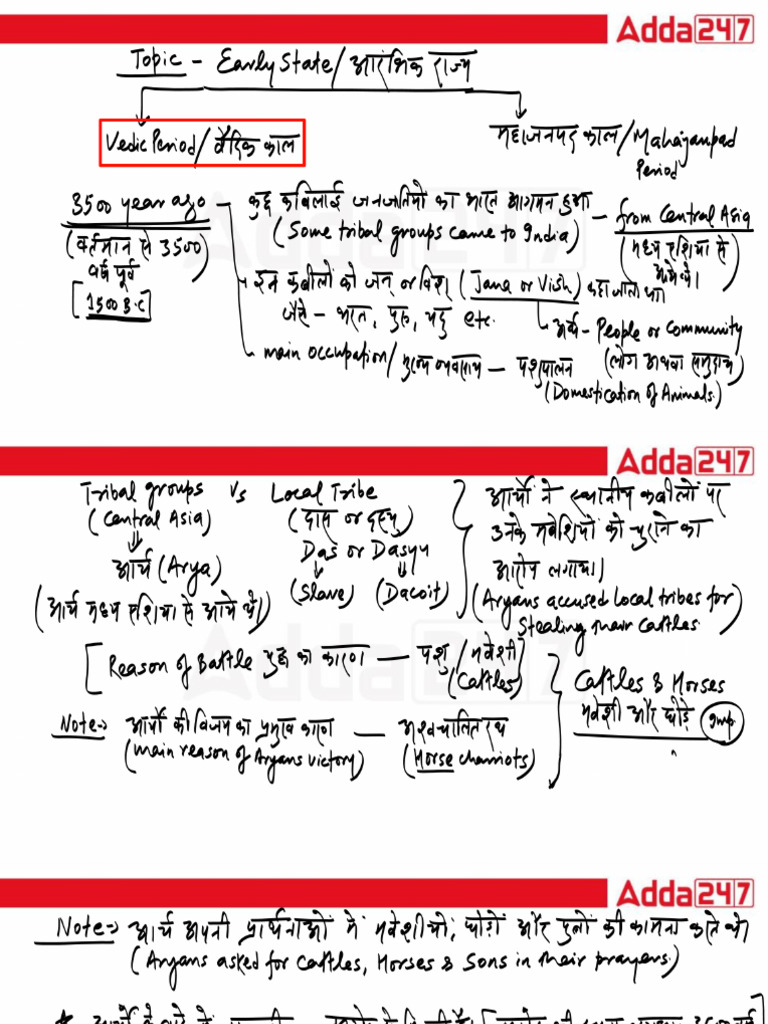 Adda247
Topic - Early State/ आरंभिक राज्य
Vedic Period/ वैदिक काल
महाजनपद काल/Mahajanpad Period
3500 year ago - कुछ कबिलाई जनजातियों का भारत आगमन हुआ - from Central Asia
(वर्तमान से 3500 वर्ष पूर्व)
(Some tribal groups came to India)
(मध्य एशिया से आये थे।)
[1500 B.C]
इन कबीलों को जन or विश (Jana or Vish) कहा जाता था
जैसे - भरत, पुरु, यदु etc.
अर्थ - People or Community
(लोग अथवा समुदाय)
main occupation/मुख्य व्यवसाय - पशुपालन
(Domestication of Animals)
Adda247
Tribal groups Vs Local Tribe
(Central Asia) (दास or दस्यु)
आर्य (Arya) Das or Dasyu
(Slave) (Dacoit)
(आर्य मध्य एशिया से आये थे।)
आर्यों ने स्थानीय कबीलों पर
उनके मवेशियों को चुराने का
आरोप लगाया।
(Aryans accused Local tribes for
Stealing their Cattles)
[Reason of Battle युद्ध का कारण - पशु/मवेशी
(Cattles)]
Cattles & Horses
मवेशी और घोड़े Imp.
Note:-> आर्यों की विजय का प्रमुख कारण - अश्वचालित रथ
(main reason of Aryans victory) (Horse charriots)
Adda247
Note:-> आर्य अपनी प्रार्थनाओं में मवेशीयों, घोड़ों और पुत्रों की कामना करते थे।
(Aryans asked for Cattles, Horses & Sons in their prayers.)